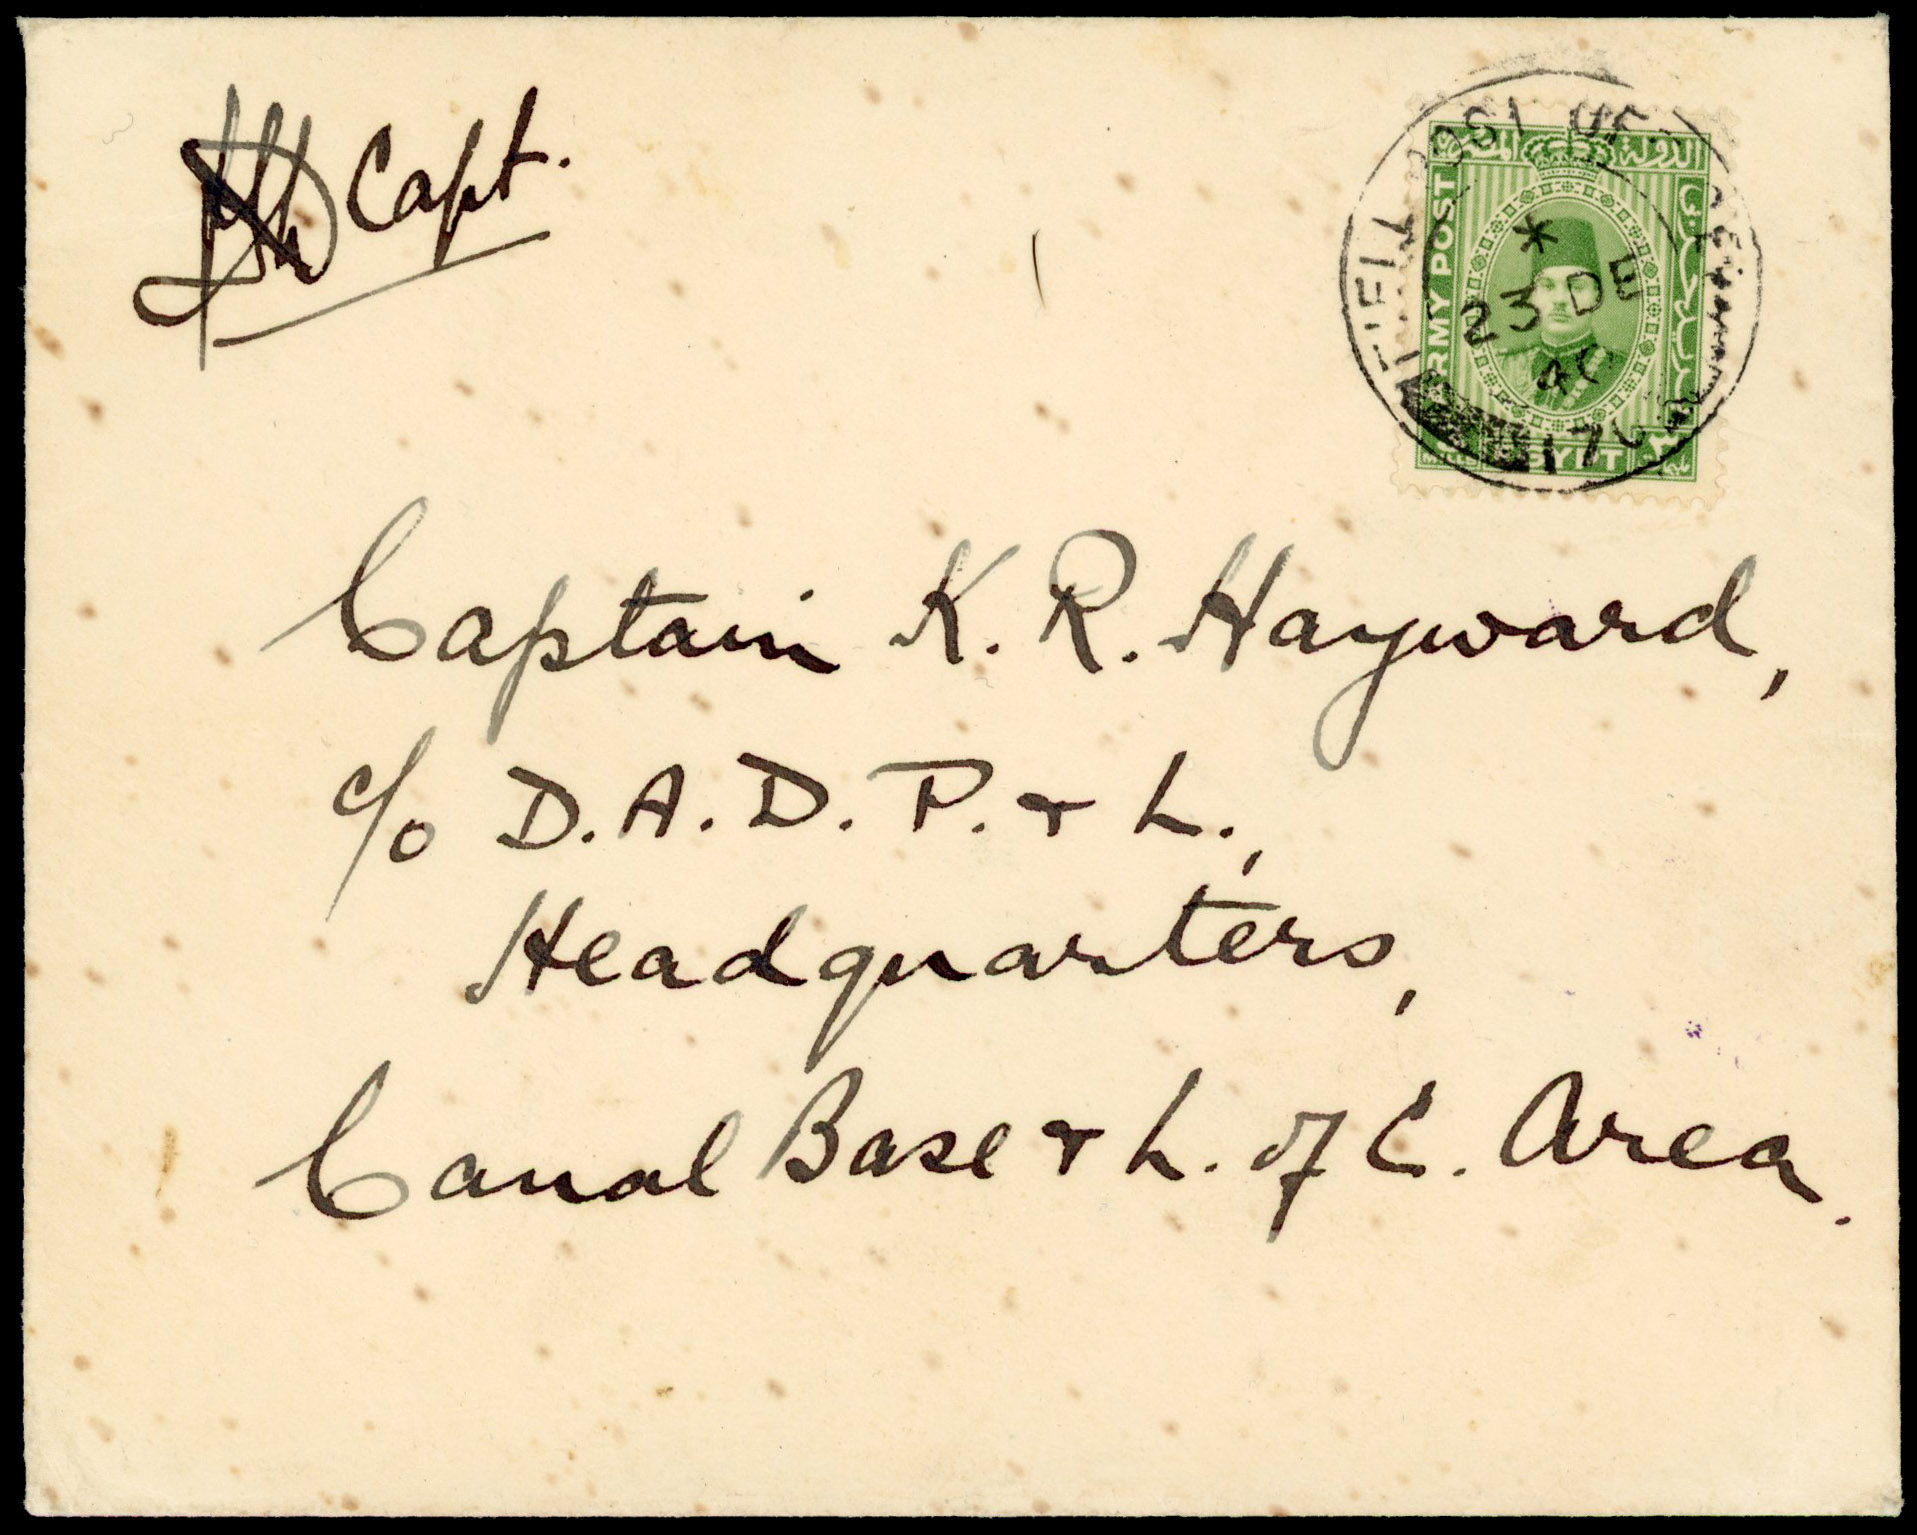 Capt.
FIELD POST OFFICE
*
23 DE
40
170
الدولة المصرية
ARMY POST
EGYPT
MILLS
Captain K. R. Hayward,
c/o D. A. D. P. & L.,
Headquarters,
Canal Base & L. of C. Area.